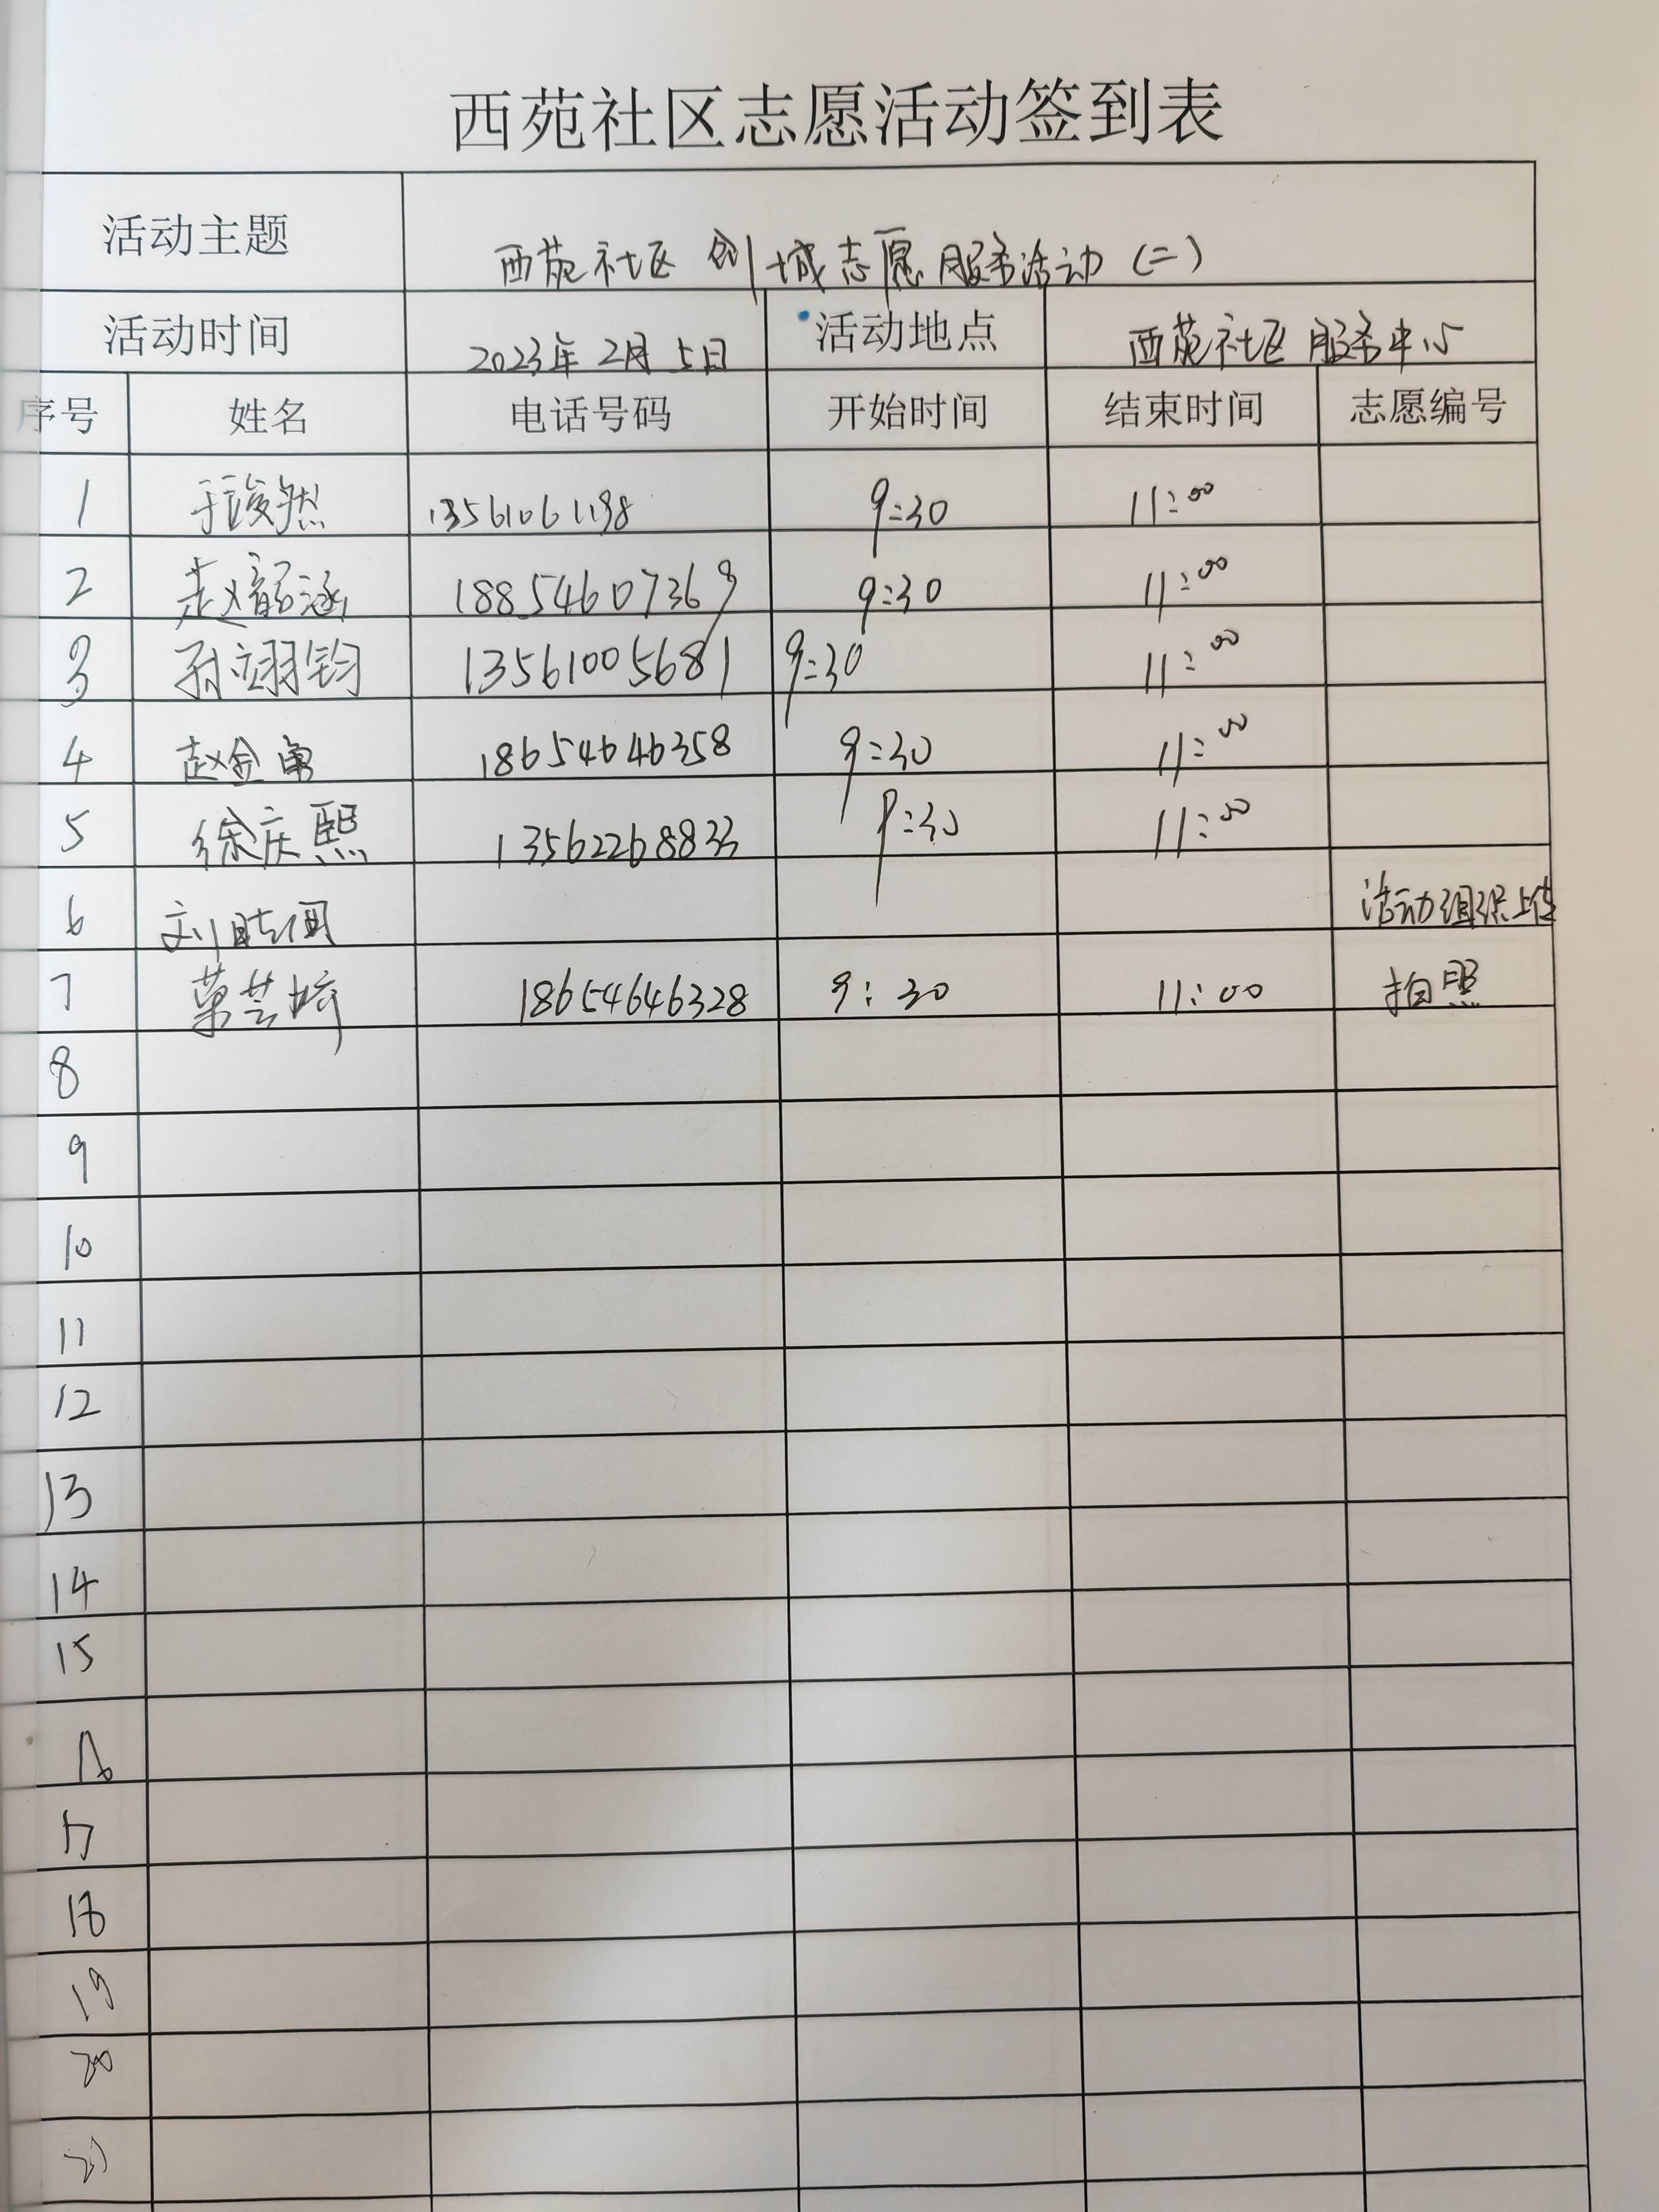 西苑社区志愿活动签到表
活动主题 西苑社区创城志愿服务活动(二)
活动时间 2023年2月5日 活动地点 西苑社区服务中心
序号 姓名 电话号码 开始时间 结束时间 志愿编号
1 于骏然 13561061198 9:30 11:00
2 赵韶涵 18854607369 9:30 11:00
3 孙翊钧 13561005681 9:30 11:00
4 赵金勇 18654646358 9:30 11:00
5 徐庆熙 13562268833 9:30 11:00
6 刘 活动组织上传
7 18654646328 9:30 11:00 拍照
8
9
10
11
12
13
14
15
16
17
18
19
20
21